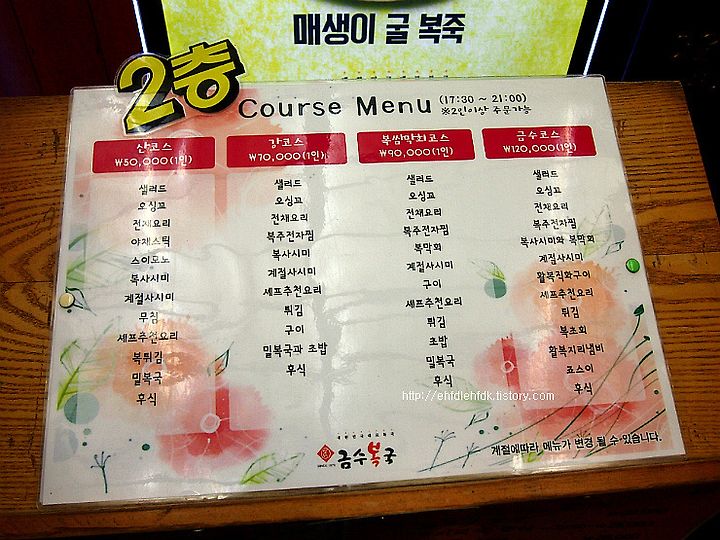 매생이 굴 복죽
2층
Course Menu (17:30 ~ 21:00)
※2인이상 주문가능
산코스
₩50,000(1인)
샐러드
오싱꼬
전채요리
야채스틱
스이모노
복사시미
계절사시미
무침
셰프추천요리
복튀김
밀복국
후식
강코스
₩70,000(1인)
샐러드
오싱꼬
전채요리
복주전자찜
복사시미
계절사시미
셰프추천요리
튀김
구이
밀복국과 초밥
후식
복쌈막회코스
₩90,000(1인)
샐러드
오싱꼬
전채요리
복주전자찜
복막회
구이
셰프추천요리
튀김
초밥
밀복국
후식
금수코스
₩120,000(1인)
샐러드
오싱꼬
전채요리
복주전자찜
복사시미와 복막회
계절사시미
활복직화구이
셰프추천요리
튀김
복초회
활복지리냄비
죠스이
후식
http://ehfdlehfdk.tistory.com
금수복국
계절에따라, 메뉴가 변경 될 수 있습니다.